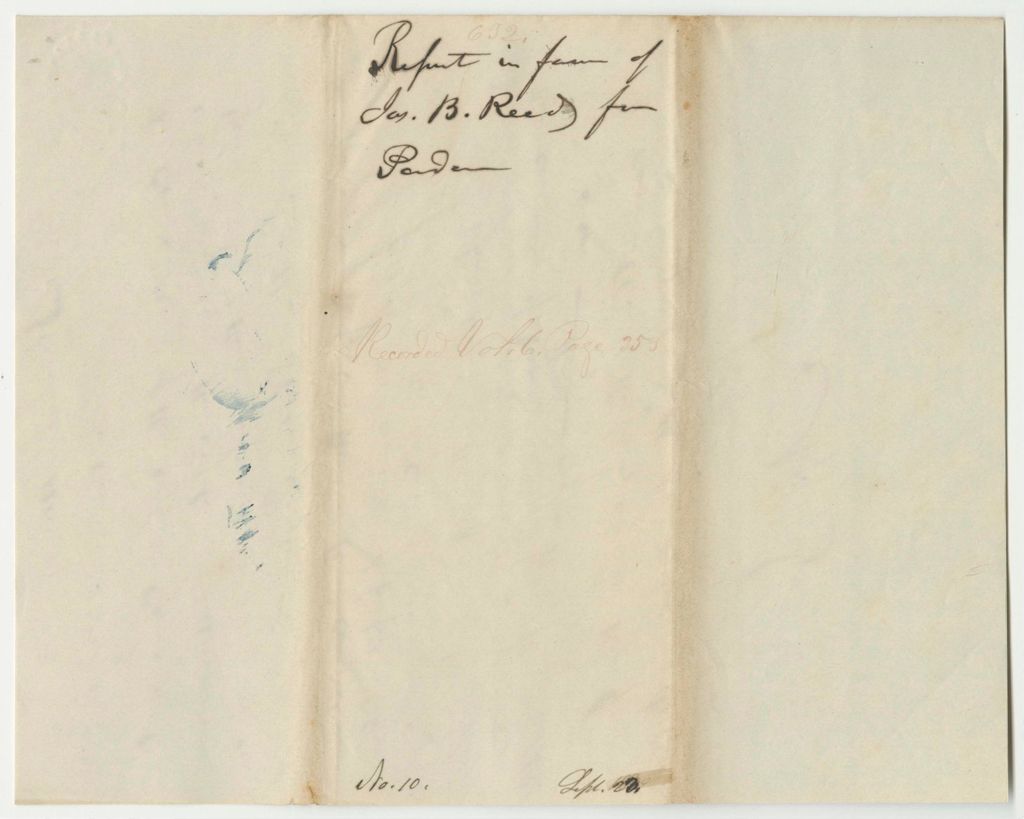 632.
Report in favor of
Jas. B. Reed for
Pardon
Recorded Vol. 6. Page 255
No. 10. Sept.